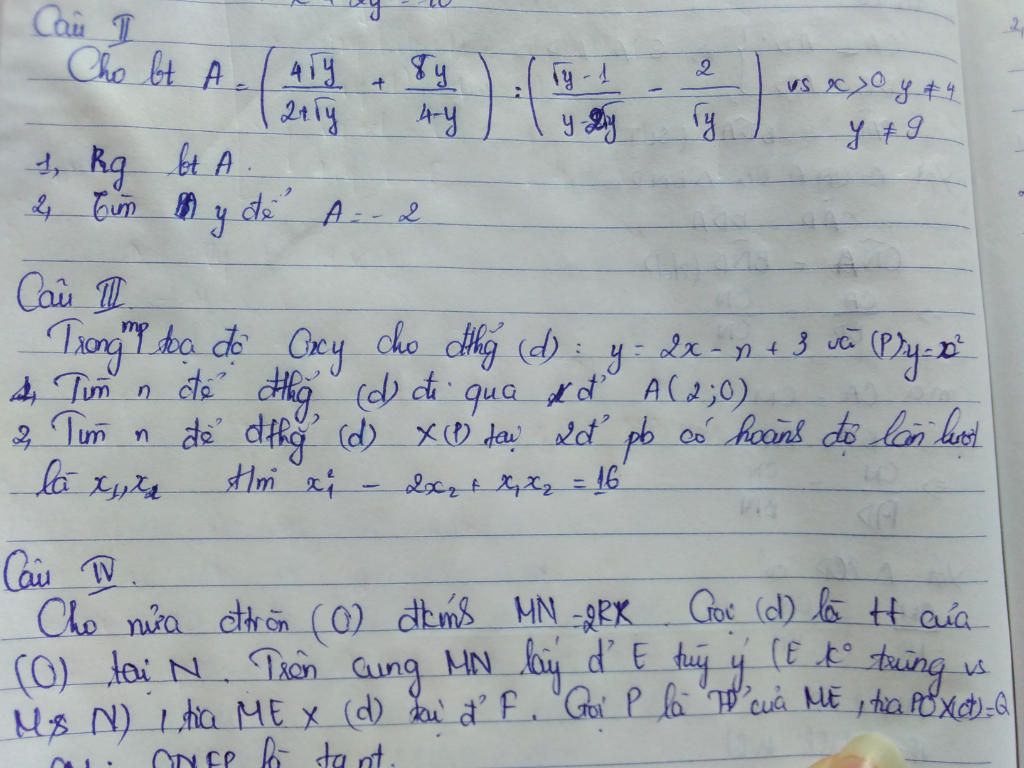 x + 2y = 10
Câu II
Cho bt A = (4√y/2+√y + 8y/4-y) : (√y-1/y-2√y - 2/√y) vs x>0 y≠4
y≠9
1, Rg bt A.
2, Tìm y để A = -2
Câu III
Trong mp toạ độ Oxy cho đthg (d): y = 2x - n + 3 và (P): y = x²
1, Tìm n để đthg (d) đi qua đ' A(2;0)
2, Tìm n để đthg (d) X (P) tại 2 đ' pb có hoành độ lần lượt
là x₁, x₂ t/m x₁² - 2x₂ + x₁x₂ = 16
Câu IV.
Cho nửa đtròn (O) đkính MN = 2R. Gọi (d) là tt của
(O) tại N. Trên cung MN lấy đ' E tuỳ ý (E k° trùng vs
M & N), tia ME x (d) tại đ' F. Gọi P là TĐ' của ME, tia PO X (d) = Q
ONFP là tg nt.